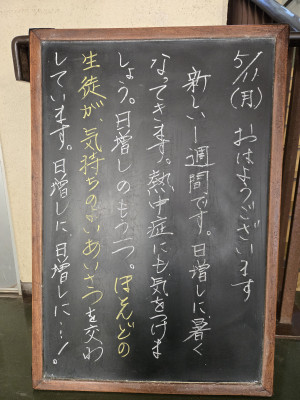 5/11(月) おはようございます
新しい一週間です。日増しに、暑く
なってきます。熱中症にも気をつけま
しょう。日増しのもう一つ。ほとんどの
生徒が、気持ちのよいあいさつを交わ
しています。日増しに、日増しに…！。